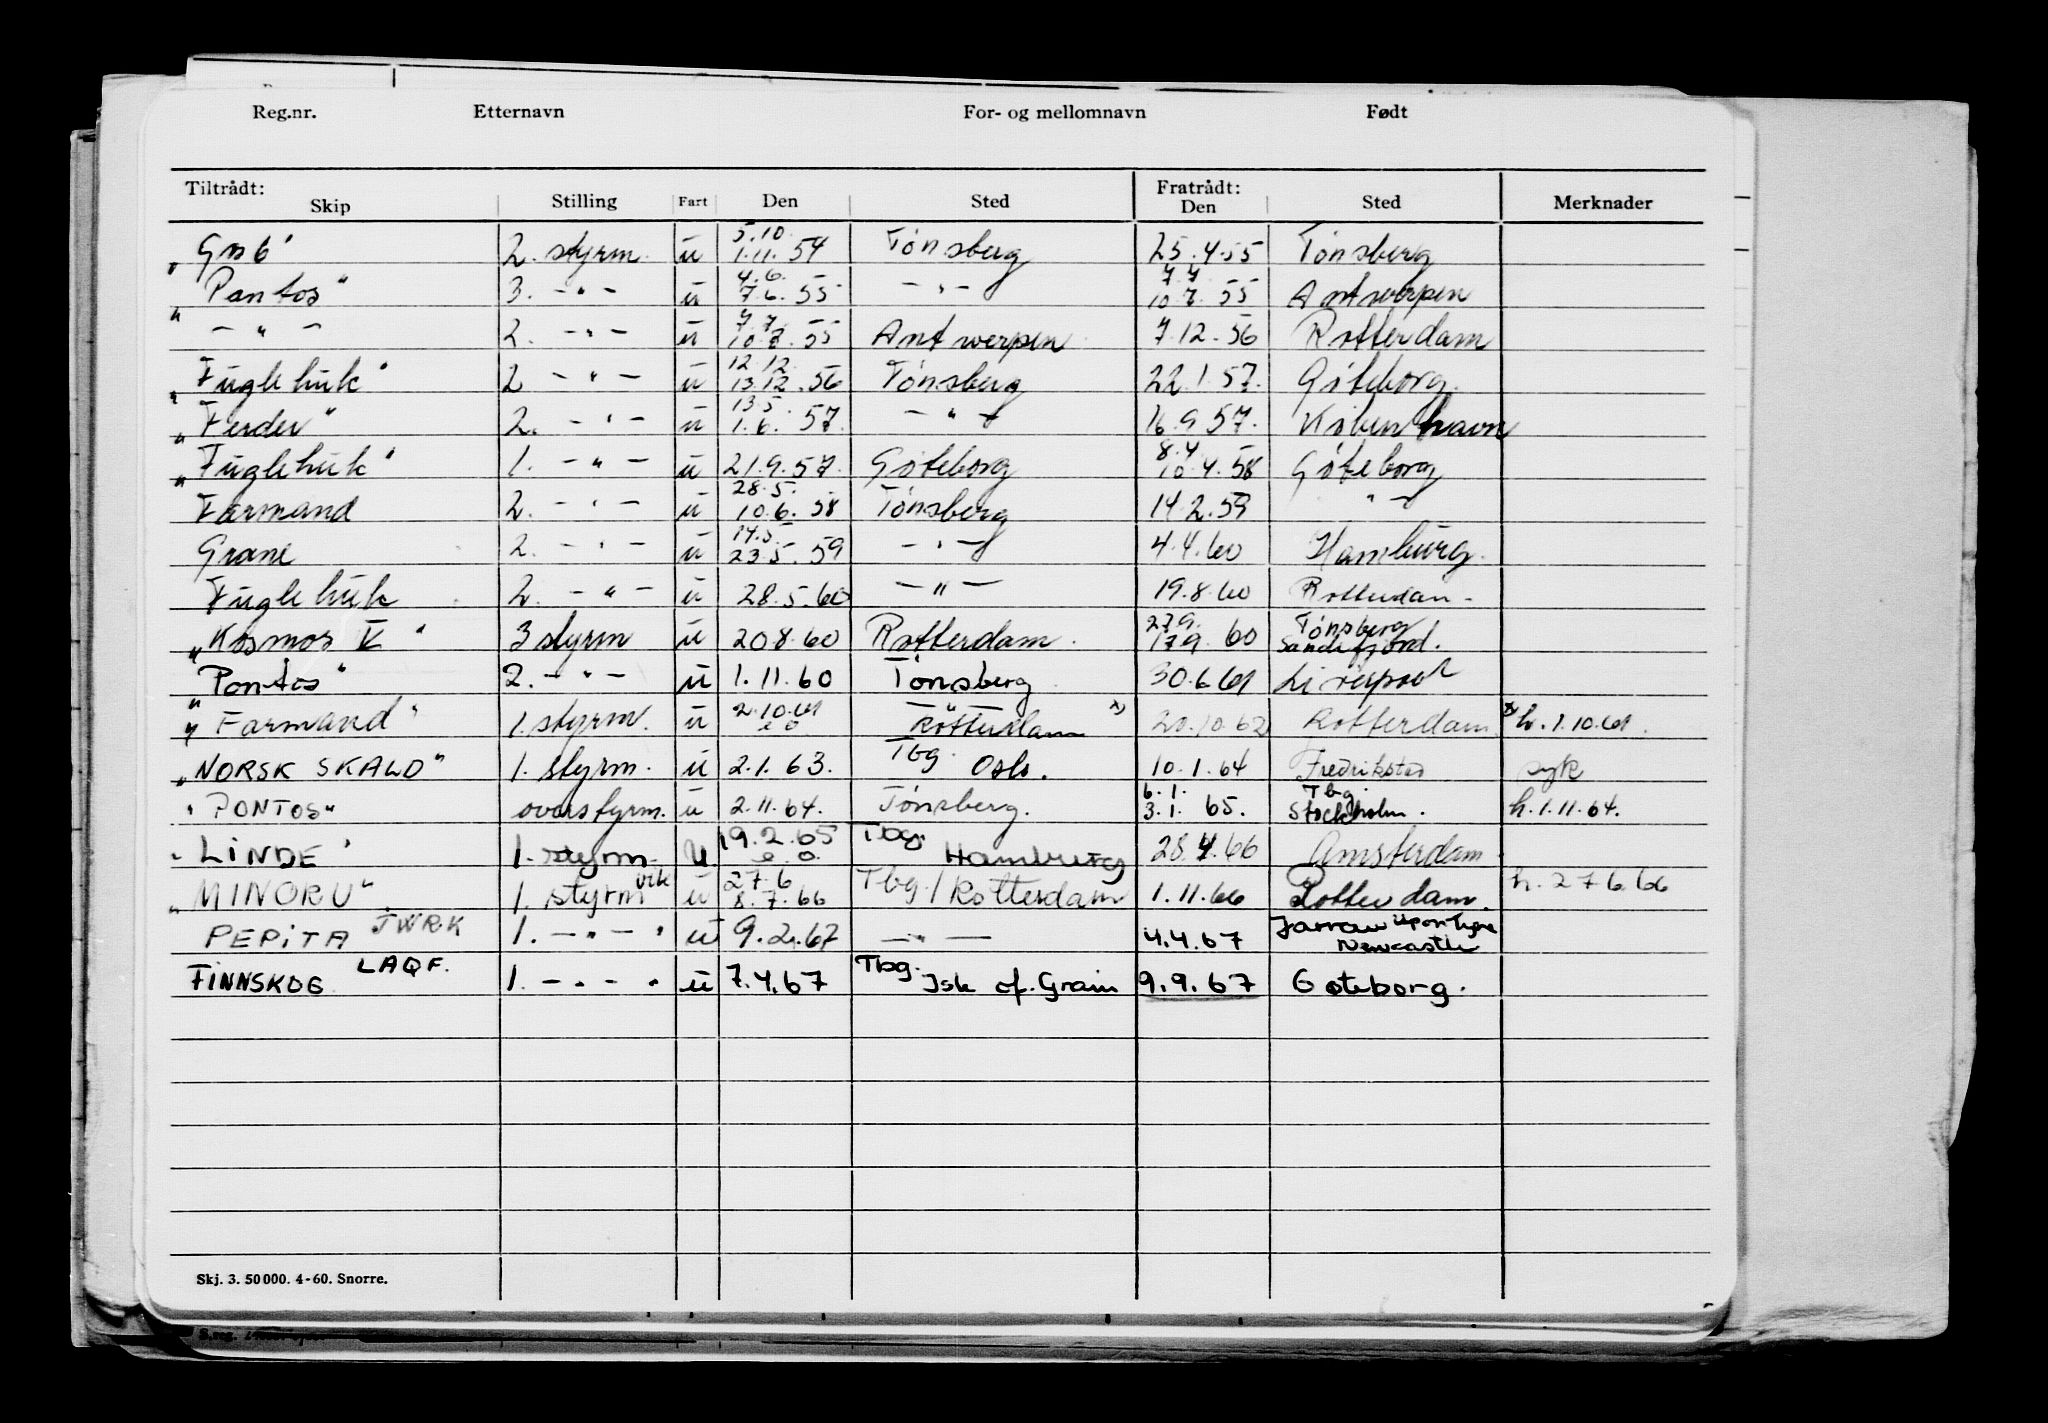 Reg.nr. Etternavn For- og mellomnavn Født
Tiltrådt: Fratrådt:
Skip Stilling Fart Den Sted Den Sted Merknader
2. styrm. u 5.10. 1.11.54 Tønsberg 25.4.55 Tønsberg
"Pontos" 3. -"- u 4.6. 7.6.55 -"- 7.7 10.7.55 Antwerpen
-"- 2. -"- u 7.7. 10.7.55 Antwerpen 7.12.56 Rotterdam
"Fuglehuk" 2 -"- u 12.12. 13.12.56 Tønsberg 22.1.57. Göteborg.
"Ferder" 2. -"- u 13.5. 1.6.57. -"- 16.9.57. København
"Fuglehuk" 1. -"- u 21.9.57. Göteborg 8.4 10.4.58 Göteborg
Farmand 2. -"- u 28.5. 10.6.58 Tønsberg 14.2.59 "-
Grane 2. -"- u 14.5. 23.5.59 -"- 4.4.60 Hamburg.
Fuglehuk 2. -"- u 28.5.60 -"- 19.8.60 Rotterdam -
"Kosmos V" 3 styrm u 20.8.60 Rotterdam. 27.9. 17.9.60 Tønsberg Sandefjord.
"Pontos" 2. -"- u 1.11.60 Tønsberg 30.6.61 Liverpool
"Farmand" 1. styrm. u 2.10.61 e o -"- Rotterdam x) 20.10.62 Rotterdam x) h. 1.10.61.
"NORSK SKALD" 1. styrm. u 2.1.63. Tbg. Oslo. 10.1.64 Fredrikstad syk
"PONTOS" overstyrm. u 2.11.64. Tønsberg. 6.1. 3.1.65. Tbg. Stockholm. h. 1.11.64.
"LINDE" 1. styrm. u. 19.2.65 e.o. Tbg. Hamburg 28.4.66 Amsterdam
"MINORU" 1. styrm vik u 27.6 8.7.66 Tbg./Rotterdam 1.11.66 Rotterdam. h. 27.6.66
PEPITA JWRK 1. -"-" u 9.2.67 -"- 4.4.67 Jarrow upon Tyne Newcastle
FINNSKOG LAQF. 1. -"-" u 7.4.67 Tbg. Isle of. Grain 9.9.67 Gøteborg.
Skj. 3. 50 000. 4-60. Snorre.